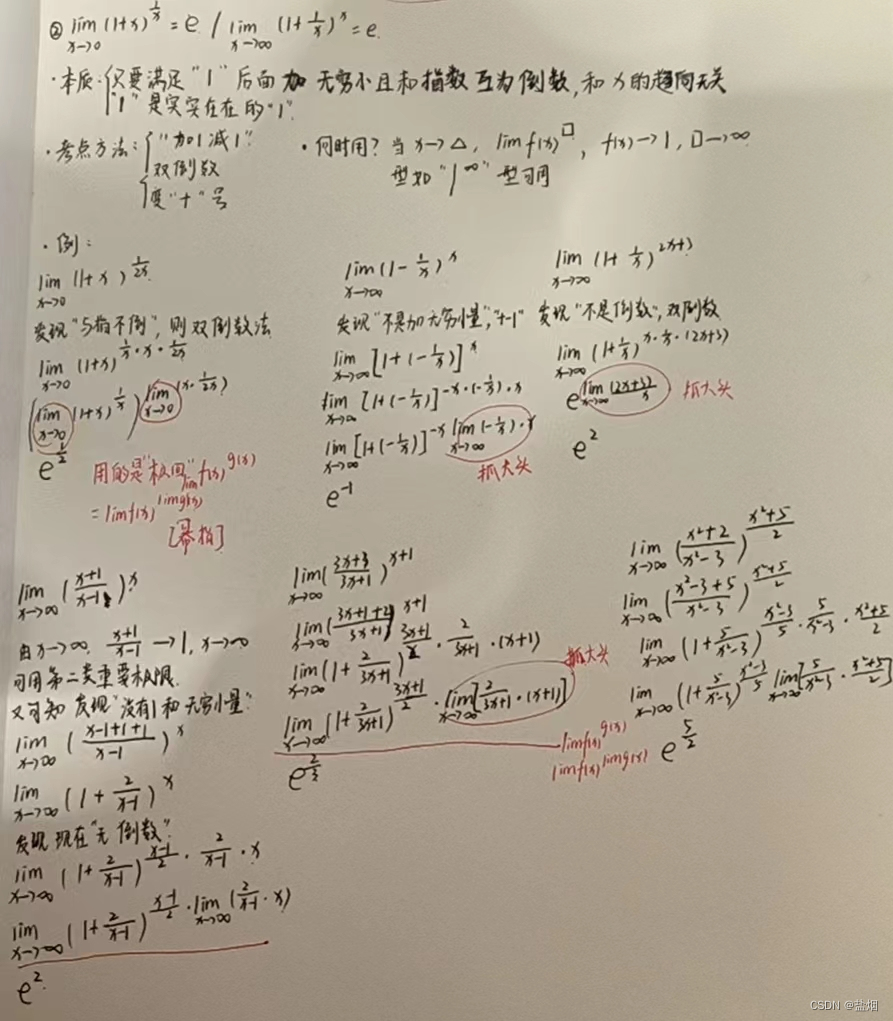 ② lim x→0 (1+x)^(1/x) = e / lim x→∞ (1+1/x)^x = e
· 本质: 只要满足"1"后面加 无穷小且和指数互为倒数, 和x的趋向无关
"1"是实实在在的"1"
· 考点方法: "加1减1"
双倒数
变"+"号
· 何时用? 当x→△, lim f(x)^□, f(x)→1, □→∞
型如"1^∞"型可用
· 例:
lim x→0 (1+x)^(1/2x)
发现"与指不倒", 则双倒数法
lim x→0 (1+x)^(1/x · x · 1/2x)
(lim x→0 (1+x)^(1/x))^(lim x→0 (x · 1/2x))
e^(1/2)
用的是"极回" lim f(x)^g(x)
= lim f(x)^(lim g(x))
[幂指]
lim x→∞ (1-1/x)^x
发现"不是加无穷小量", "+-1"
lim x→∞ [1+(-1/x)]^x
lim x→∞ [1+(-1/x)]^(-x·(-1/x)·x)
lim x→∞ [1+(-1/x)]^(-x lim x→∞ (-1/x)·x)
抓大头
e^(-1)
lim x→∞ (1+1/x)^(2x+3)
发现"不是倒数", 双倒数
lim x→∞ (1+1/x)^(x·1/x·(2x+3))
e^(lim x→∞ (2x+3)/x)
抓大头
e^2
lim x→∞ ((x+1)/(x-1))^x
由x→∞, (x+1)/(x-1) →1, x→∞
可用第二类重要极限.
又可知 发现"没有1和无穷小量":
lim x→∞ ((x-1+1+1)/(x-1))^x
lim x→∞ (1+2/(x-1))^x
发现现在"无倒数":
lim x→∞ (1+2/(x-1))^((x-1)/2 · 2/(x-1) · x)
lim x→∞ (1+2/(x-1))^((x-1)/2 · lim x→∞ (2/(x-1) · x))
e^2.
lim x→∞ ((3x+3)/(3x+1))^(x+1)
lim x→∞ ((3x+1+2)/(3x+1))^(x+1)
lim x→∞ (1+2/(3x+1))^((3x+1)/2 · 2/(3x+1) · (x+1))
lim x→∞ (1+2/(3x+1))^((3x+1)/2 · lim x→∞ [2/(3x+1) · (x+1)])
抓大头
lim f(x)^g(x)
lim f(x)^(lim g(x))
e^(2/3)
lim x→∞ ((x²+2)/(x²-3))^((x²+5)/2)
lim x→∞ ((x²-3+5)/(x²-3))^((x²+5)/2)
lim x→∞ (1+5/(x²-3))^((x²-3)/5 · 5/(x²-3) · (x²+5)/2)
lim x→∞ (1+5/(x²-3))^((x²-3)/5 lim x→∞ [5/(x²-3) · (x²+5)/2])
e^(5/2)
CSDN @盐烟